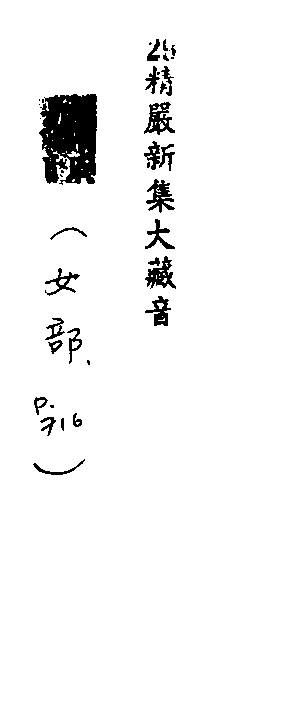 精嚴新集大藏音
(女部、
p.716)